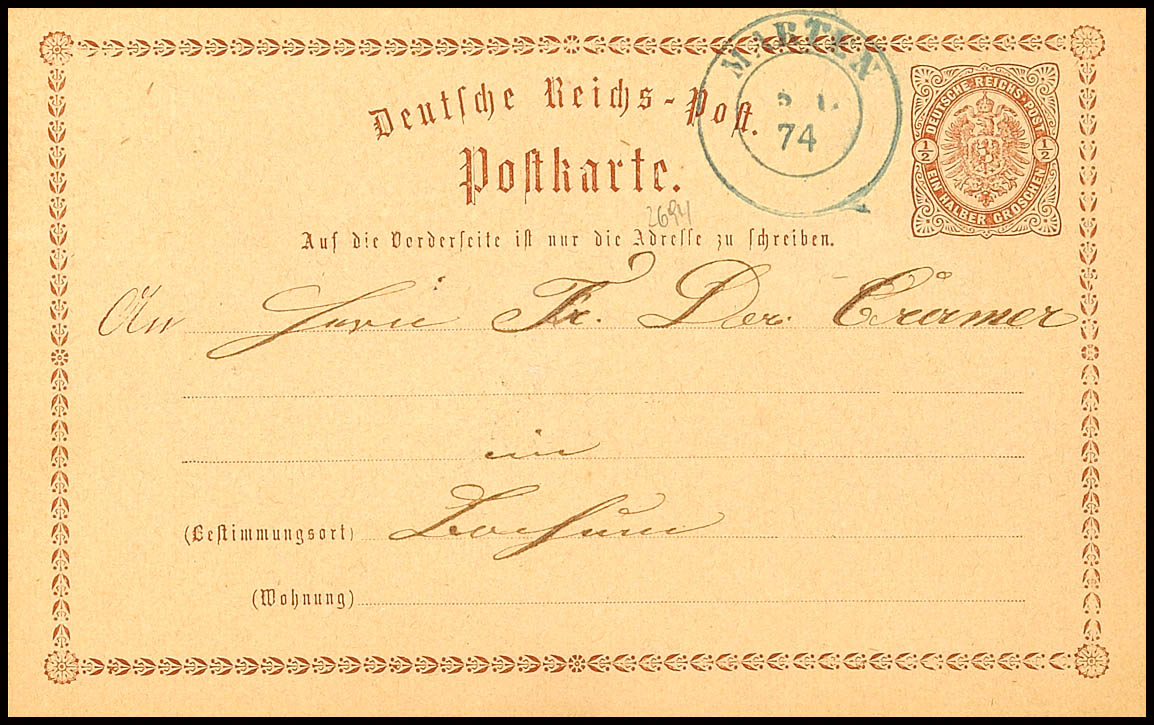 MARTEN
74
Deutsche Reichs-Post.
DEUTSCHE REICHS-POST
½ ½
EIN HALBER GROSCHEN
Postkarte.
2694
Auf die Vorderseite ist nur die Adresse zu schreiben.
An Herrn Fr. Cramer
in
(Bestimmungsort) Bochum
(Wohnung)